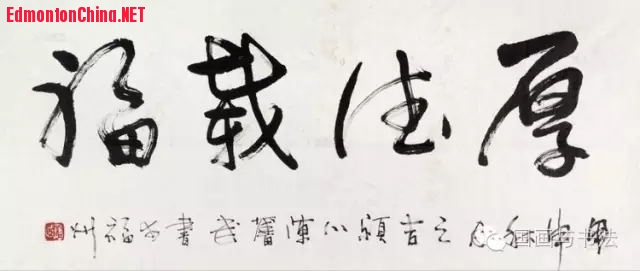 EdmontonChina.NET
厚德載福
秋月之吉潁川陳奮武書於福州
国画与书法